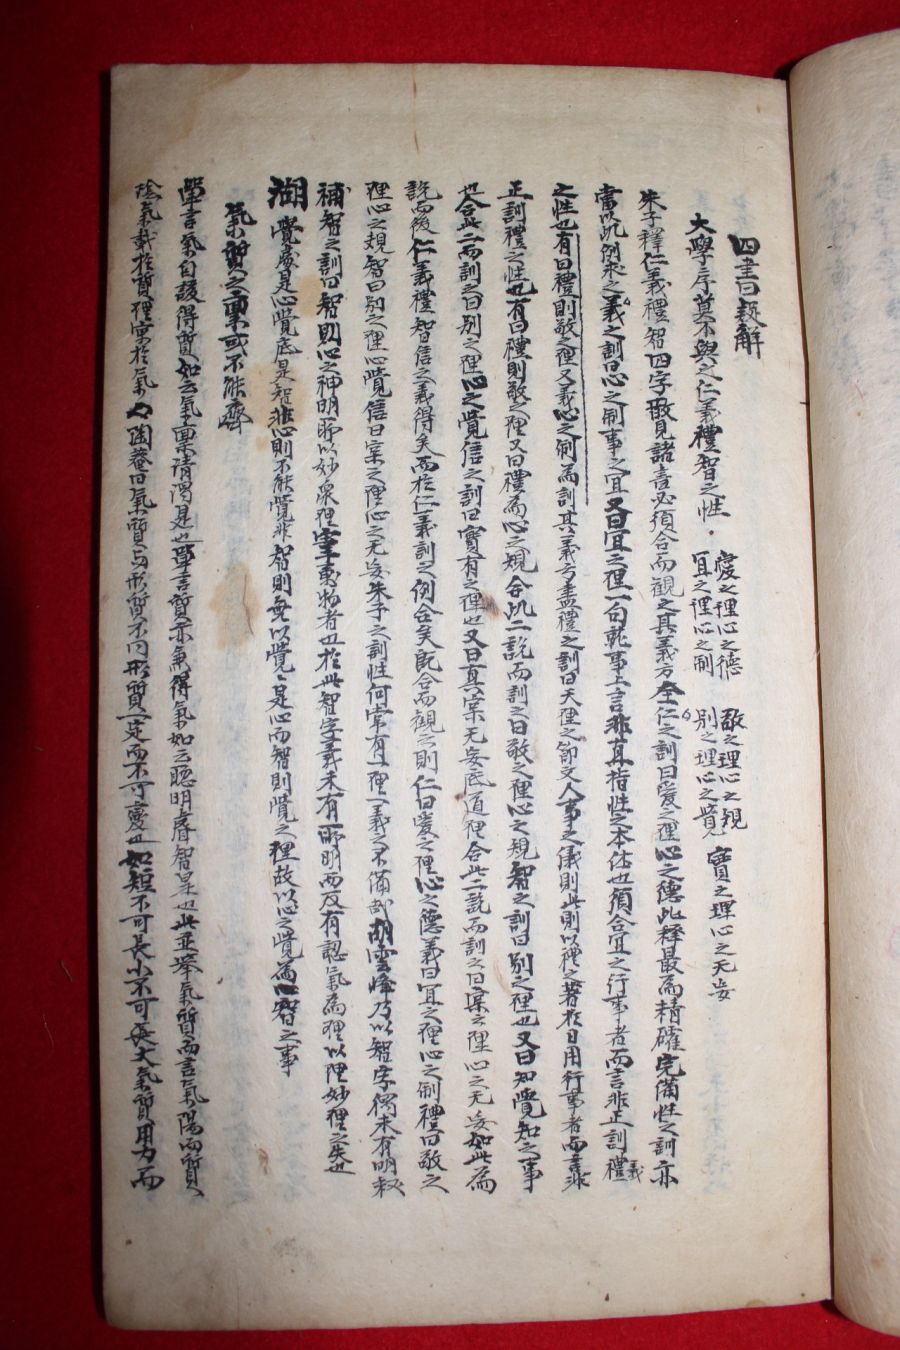 四書曰義解
大學序莫不與之仁義禮智之性 愛之理心之德 宜之理心之制 敬之理心之規 別之理心之覺 實之理心之无妄
朱子釋仁義禮智四字散見諸書必須合而觀之其義方全仁之訓曰愛之理心之德此釋最為精確完備性之訓亦
當以此例求之義之訓曰心之制事之宜又曰宜之理一句就事上言非其指性之本体也須合宜之行事者而言非正訓禮義
之性也有曰禮則敬之理又義心之制為訓其義方盡禮之訓曰天理之節文人事之儀則此則以禮之著於日用行事者而言非
正訓禮之性也有曰禮則敬之理又曰禮為心之規合此二說而訓之曰敬之理心之規智之訓曰別之理也又曰知覺知之事
也合此二而訓之曰別之理心之覺信之訓曰實有之理也又曰真實无妄底道理合此二說而訓之曰實之理心之无妄如此為
說而後仁義禮智信之義得矣而於仁義訓之例合矣旣合而觀之則仁曰愛之理心之德義曰宜之理心之制禮曰敬之
理心之規智曰別之理心覺信曰実之理心之无妄朱子之訓性何嘗有一理一義之不備哉胡雲峰乃以智字獨未有明釈
補智之訓曰智則心之神明所以妙衆理宰事物者也於此智字義未有所明而反有認氣為理以理妙理之失也
湖 覺處是心覺底是智非心則不能覺非智則無以覺覺是心而智則覺之理故以心之覺為心智之事
氣質之稟或不能齊
單言氣自該得質如云氣稟清濁是也單言質亦兼得氣如云聰明睿智是也此並擧氣質而言氣陽而質
陰氣載於質理寓於氣 陶菴曰氣質与形質不同形質一定而不可變也如短不可長小不可使大氣質用力而